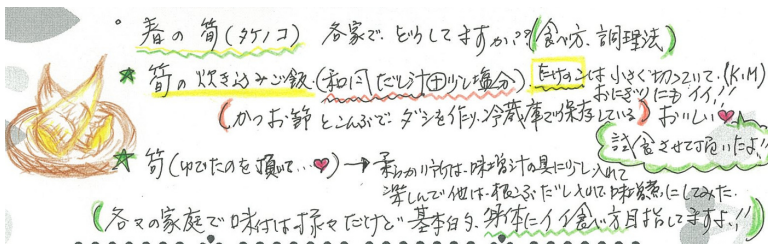 。春の筍(タケノコ) 各家で、どうしてますか??(食べ方、調理法)
★ 筍の炊き込みご飯(和風だし汁 少し塩分)。たけのこは小さく切っていて、(K.M)
おにぎりにもイイ!!
(かつお節とこんぶで、ダシを作り、冷蔵庫で保存している) おいしい♥
試食させて頂いたよ!!
★ 筍(ゆでたのを頂いて…♥) → 柔らかい所は、味噌汁の具に少し入れて
楽しんで他は、だし入れて味噌煮にしてみた。
(各々の家庭で味付は様々だけど基本的、身体にイイ食べ方目指してますよ!!)